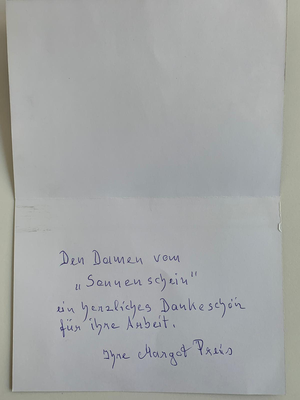 Den Damen vom
„Sonnenschein"
ein herzliches Dankeschön
für ihre Arbeit.
Ihre Margot Preis